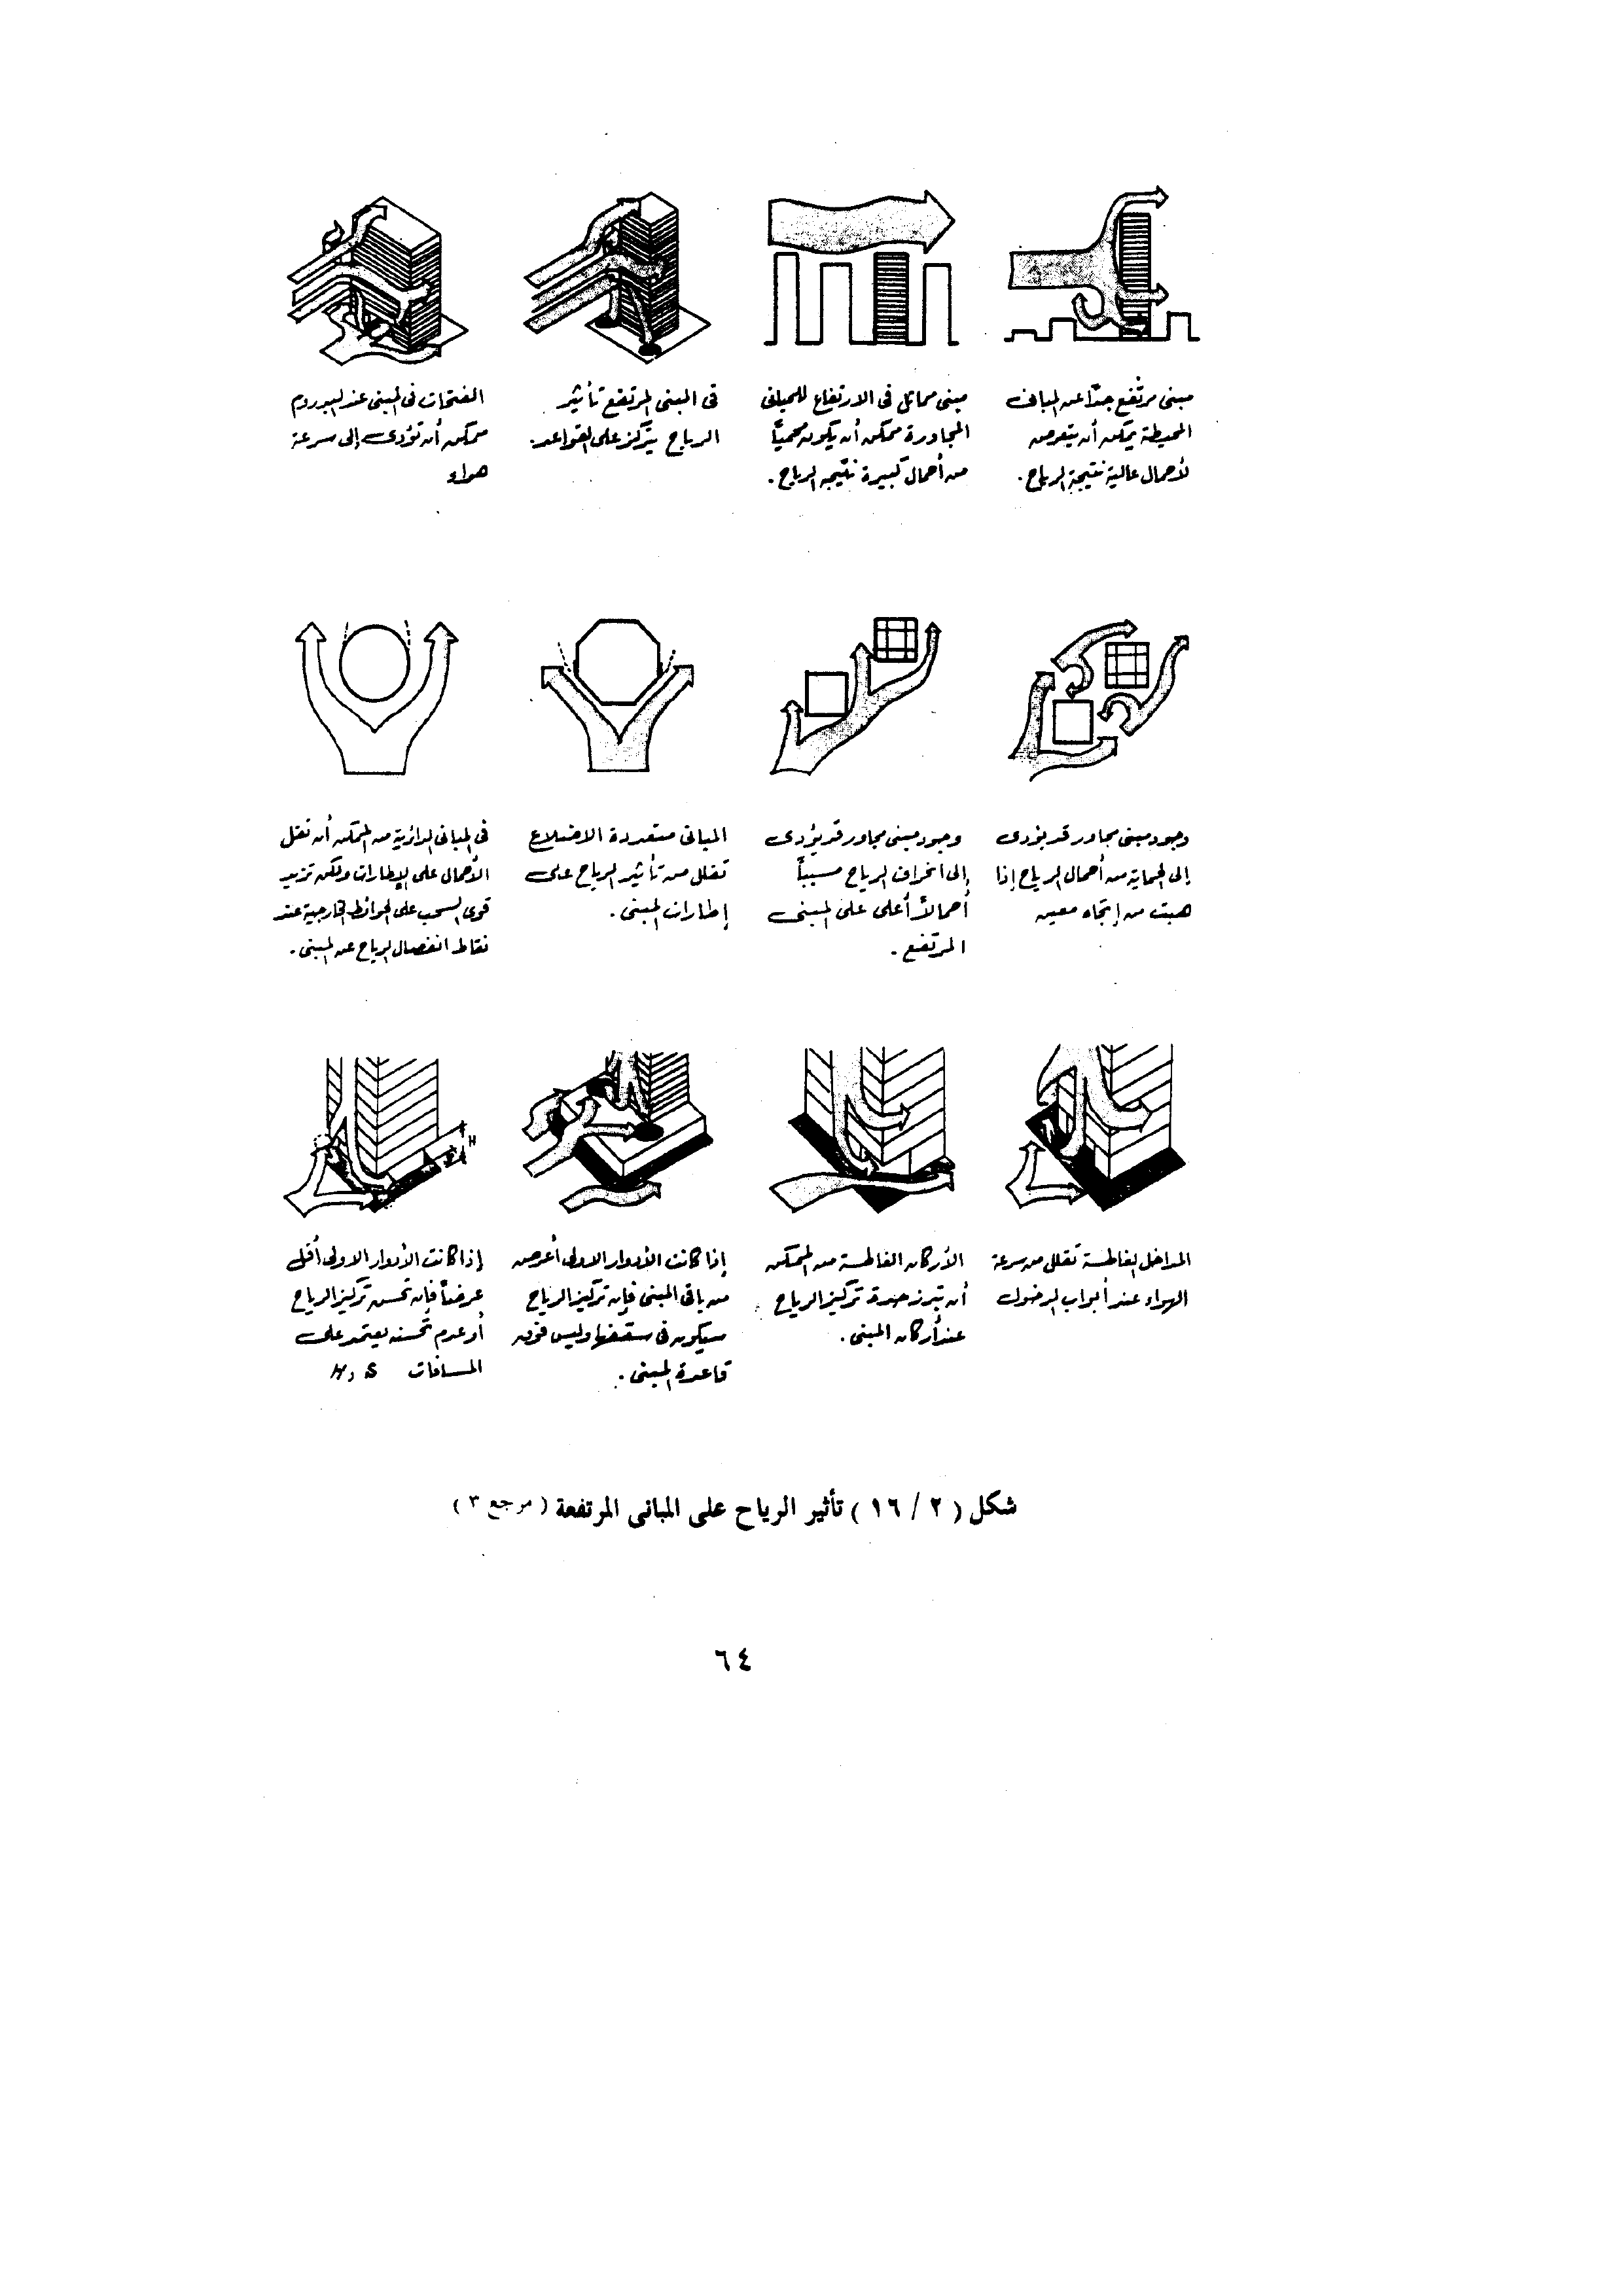 مبنى مرتفع جدًا عن المبانى
المحيطة يمكن أن يتعرض
لأحمال عالية نتيجة الرياح.
مبنى مماثل فى الارتفاع للمبانى
المجاورة ممكن أن يكون محميًا
من أحمال كبيرة نتيجة الرياح.
فى المبنى المرتفع تأثير
الرياح يتركز على القواعد.
الفتحات فى المبنى عند البدروم
ممكن أن تؤدى إلى سرعة
هواء
وجود مبنى مجاور قد يؤدى
إلى الحماية من أحمال الرياح إذا
هبت من إتجاه معين
وجود مبنى مجاور قد يؤدى
إلى انحراف الرياح مسببًا
أحمالًا أعلى على المبنى
المرتفع.
المبانى متعددة الاضلاع
تقلل من تأثير الرياح على
إطارات المبنى.
فى المبانى الدائرية من الممكن أن تقل
الأحمال على الإطارات ولكن تزيد
قوى السحب على الحوائط الخارجية عند
نقاط انفصال الرياح عن المبنى.
H
المداخل الغاطسة تقلل من سرعة
الهواء عند أبواب الدخول
الأركان الغاطسة من الممكن
أن تبرز حدة تركيز الرياح
عند أركان المبنى.
إذا كانت الأدوار الاولى أعرض
من باقى المبنى فإن تركيز الرياح
سيكون فى سقفها وليس فوق
قاعدة المبنى.
إذا كانت الأدوار الاولى أقل
عرضًا فإن تحسن تركيز الرياح
أو عدم تحسنه يعتمد على
المسافات S و H
شكل ( ٢ / ١٦ ) تأثير الرياح على المبانى المرتفعة ( مرجع ٣ )
٦٤